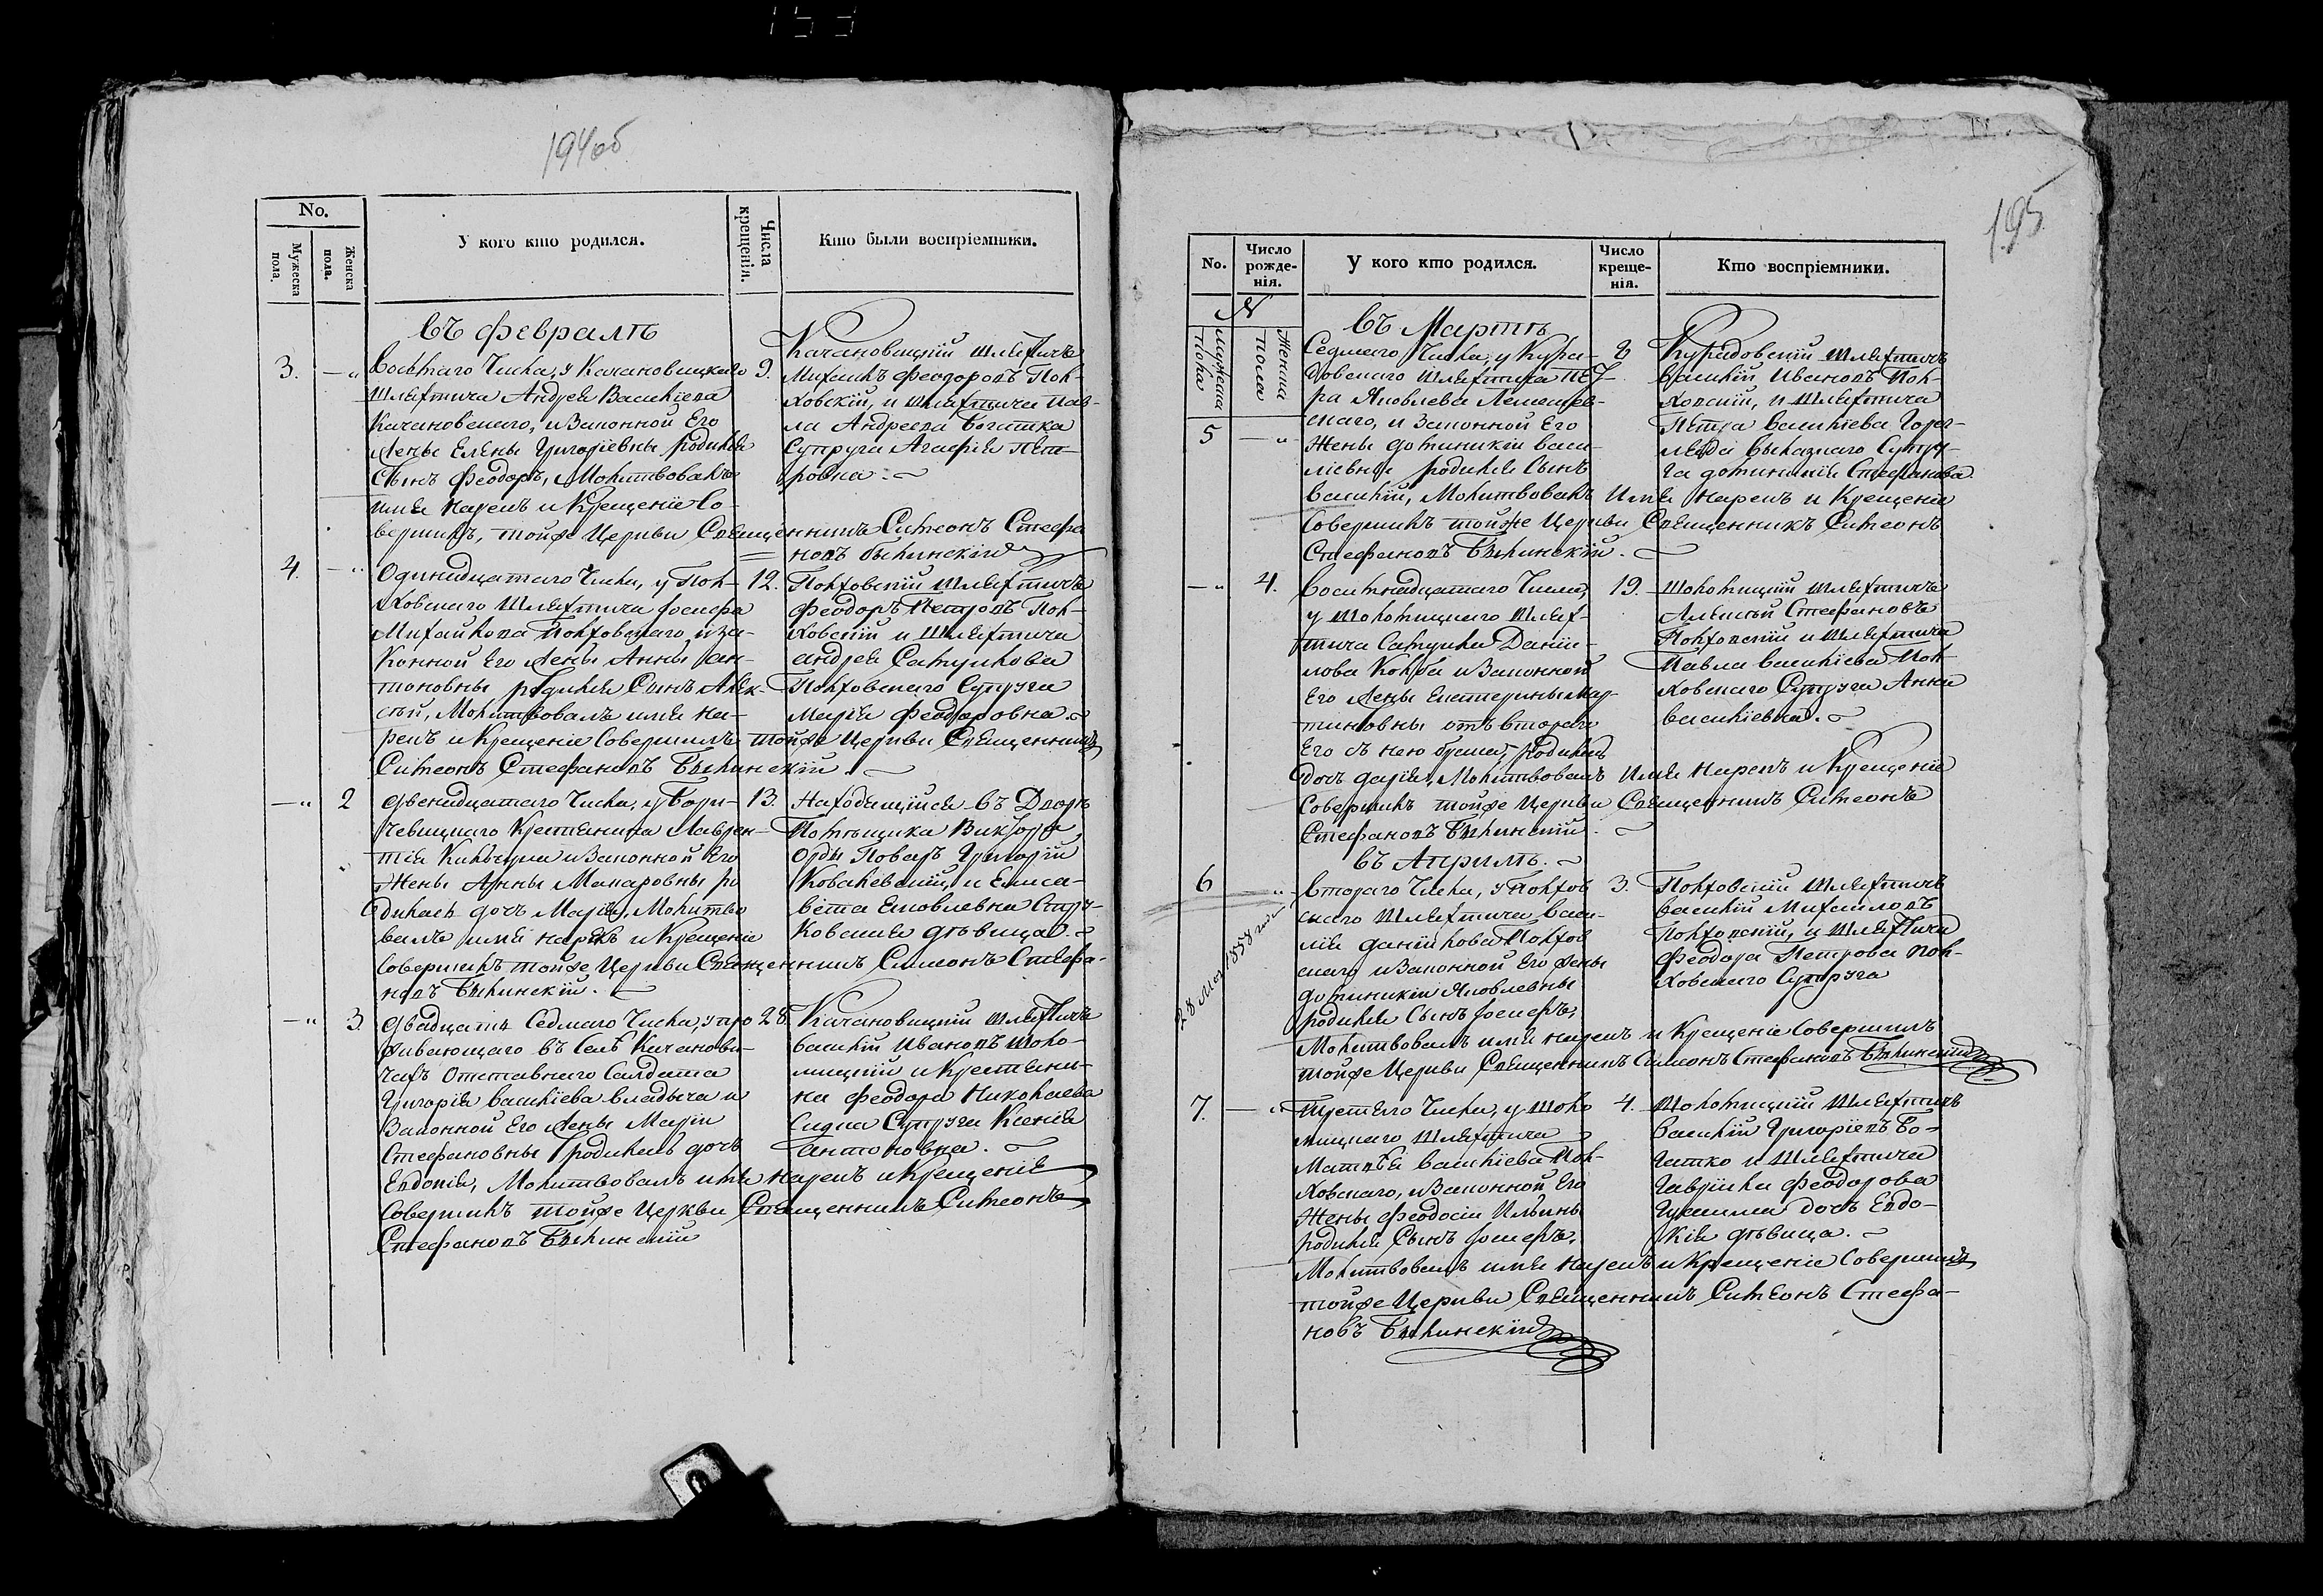 194об
No.
Мужеска пола.
Женска пола.
У кого кто родился.
Числа крещенія.
Кто были воспріемники.
Въ Февралѣ
3. — „ Восьмаго Числа, у Качановицкаго 9.
Шляхтича Андрея Василіева
Качановскаго, и Законной Его
Жены Елены Григоріевны родился
Сынъ Феодоръ, Молитвовалъ
имя нарекъ и Крещеніе Со-
вершилъ, тойже Церкви Священникъ Симеонъ Стефа
новъ Бялинскій
Качановицкій шляхтичъ
Михаилъ Феодоровъ Пол-
ховскій, и шляхтича Пав-
ла Андреева Богатка
Супруга Агафія Пет-
ровна.
4. — „ Одинадцатаго Числа, у Пол- 12.
ховскаго Шляхтича Іосифа
Михайлова Полховскаго, и за-
конной Его Жены Анны Ан-
тоновны родился Сынъ Алек-
сѣй, Молитвовалъ имя на-
рекъ и Крещеніе Совершилъ тойже Церкви Священникъ
Симеонъ Стефановъ Бялинскій.
Полховскій Шляхтичъ
Феодоръ Петровъ Пол-
ховскій и Шляхтича
Андрея Самуилова
Полховскаго Супруга
Марія Феодоровна.
— „ 2 Двенадцатаго Числа, у Бори- 13.
чевицкаго Крестянина Лаврен-
тія и Законной Его
Жены Анны Макаровны ро
дилась дочь Марія, Молитво
валъ имя нарекъ и Крещеніе
Совершилъ тойже Церкви Священникъ Симеонъ Стефа-
новъ Бялинскій.
Находящійся въ Дворѣ
Помѣщика Виктора
Орды Поваръ Григорій
Ковалевскій, и Елиса-
вета Яковлевна
дѣвица.
— „ 3. Двадцать Седмаго Числа, у про 28.
живающаго въ Селѣ Качанови-
чахъ Отставнаго Салдата
Григорія Василіева Владыча и
Законной Его Жены Маріи
Стефановны родилась дочь
Евдокія, Молитвовалъ имя нарекъ и Крещеніе
Совершилъ тойже Церкви Священникъ Симеонъ
Стефановъ Бялинскій
Качановицкій шляхтичъ
Василій Ивановъ Шоло-
мицкій и Крестяни-
на Феодора Николаева
Супруга Ксенія
Антоновна.
195
No.
Число рожде-
нія.
У кого кто родился.
Число креще-
нія.
Кто воспріемники.
N
Мужеска Пола
Женска Пола
Въ Мартѣ
5 — „ Седмаго Числа, у Кура- 8
довскаго Шляхтича Пет-
ра Яковлева
скаго, и Законной Его
Жены Доминикіи Васи-
ліевны родился Сынъ
Василій, Молитвовалъ Имя Нарекъ и Крещеніе
Совершилъ тойже Церкви Священникъ Симеонъ
Стефановъ Бялинскій.
Курадовскій Шляхтичъ
Василій Ивановъ Пол-
ховскій, и Шляхтича
Петра Василіева
Супру-
га Доминикія Стефанова
— „ 4. Восемнадцатаго Числа, 19.
у Шоломицкаго Шлях-
тича Самуила Даніи-
лова и Законной
Его Жены Екатерины Мар-
тиновны отъ втораго
Его съ нею брака, родилась
дочь Дарія, Молитвовалъ Имя Нарекъ и Крещеніе
Совершилъ тойже Церкви Священникъ Симеонъ
Стефановъ Бялинскій.
Шоломицкій Шляхтичъ
Алексѣй Стефановъ
Полховскій и Шляхтича
Павла Василіева Пол-
ховскаго Супруга Анна
Василіевна.
Въ Апрѣлѣ.
6 — „ Втораго Числа, у Полхов 3.
скаго Шляхтича Васи-
лія Даніилова Полхов
скаго и Законной Его Жены
Доминикіи Яковлевны
родился Сынъ Іосифъ,
Молитвовалъ имя нарекъ и Крещеніе Совершилъ
тойже Церкви Священникъ Симеонъ Стефановъ Бялинскій
Полховскій Шляхтичъ
Василій Михаиловъ
Полховскій, и Шляхтича
Феодора Петрова Пол-
ховскаго Супруга
7. — „ Третяго Числа, у Шоло 4.
мицкаго Шляхтича
Матвѣя Василіева Пол-
ховскаго, и Законной Его
Жены Феодосіи Ильины
родился Сынъ Іосифъ,
Молитвовалъ имя нарекъ и Крещеніе Совершилъ
тойже Церкви Священникъ Симеонъ Стефа-
новъ Бялинскій
Шоломицкій Шляхтичъ
Василій Григоріевъ Бо-
гатко и Шляхтича
Гавріила Феодорова
дочь Евдо-
кія дѣвица.